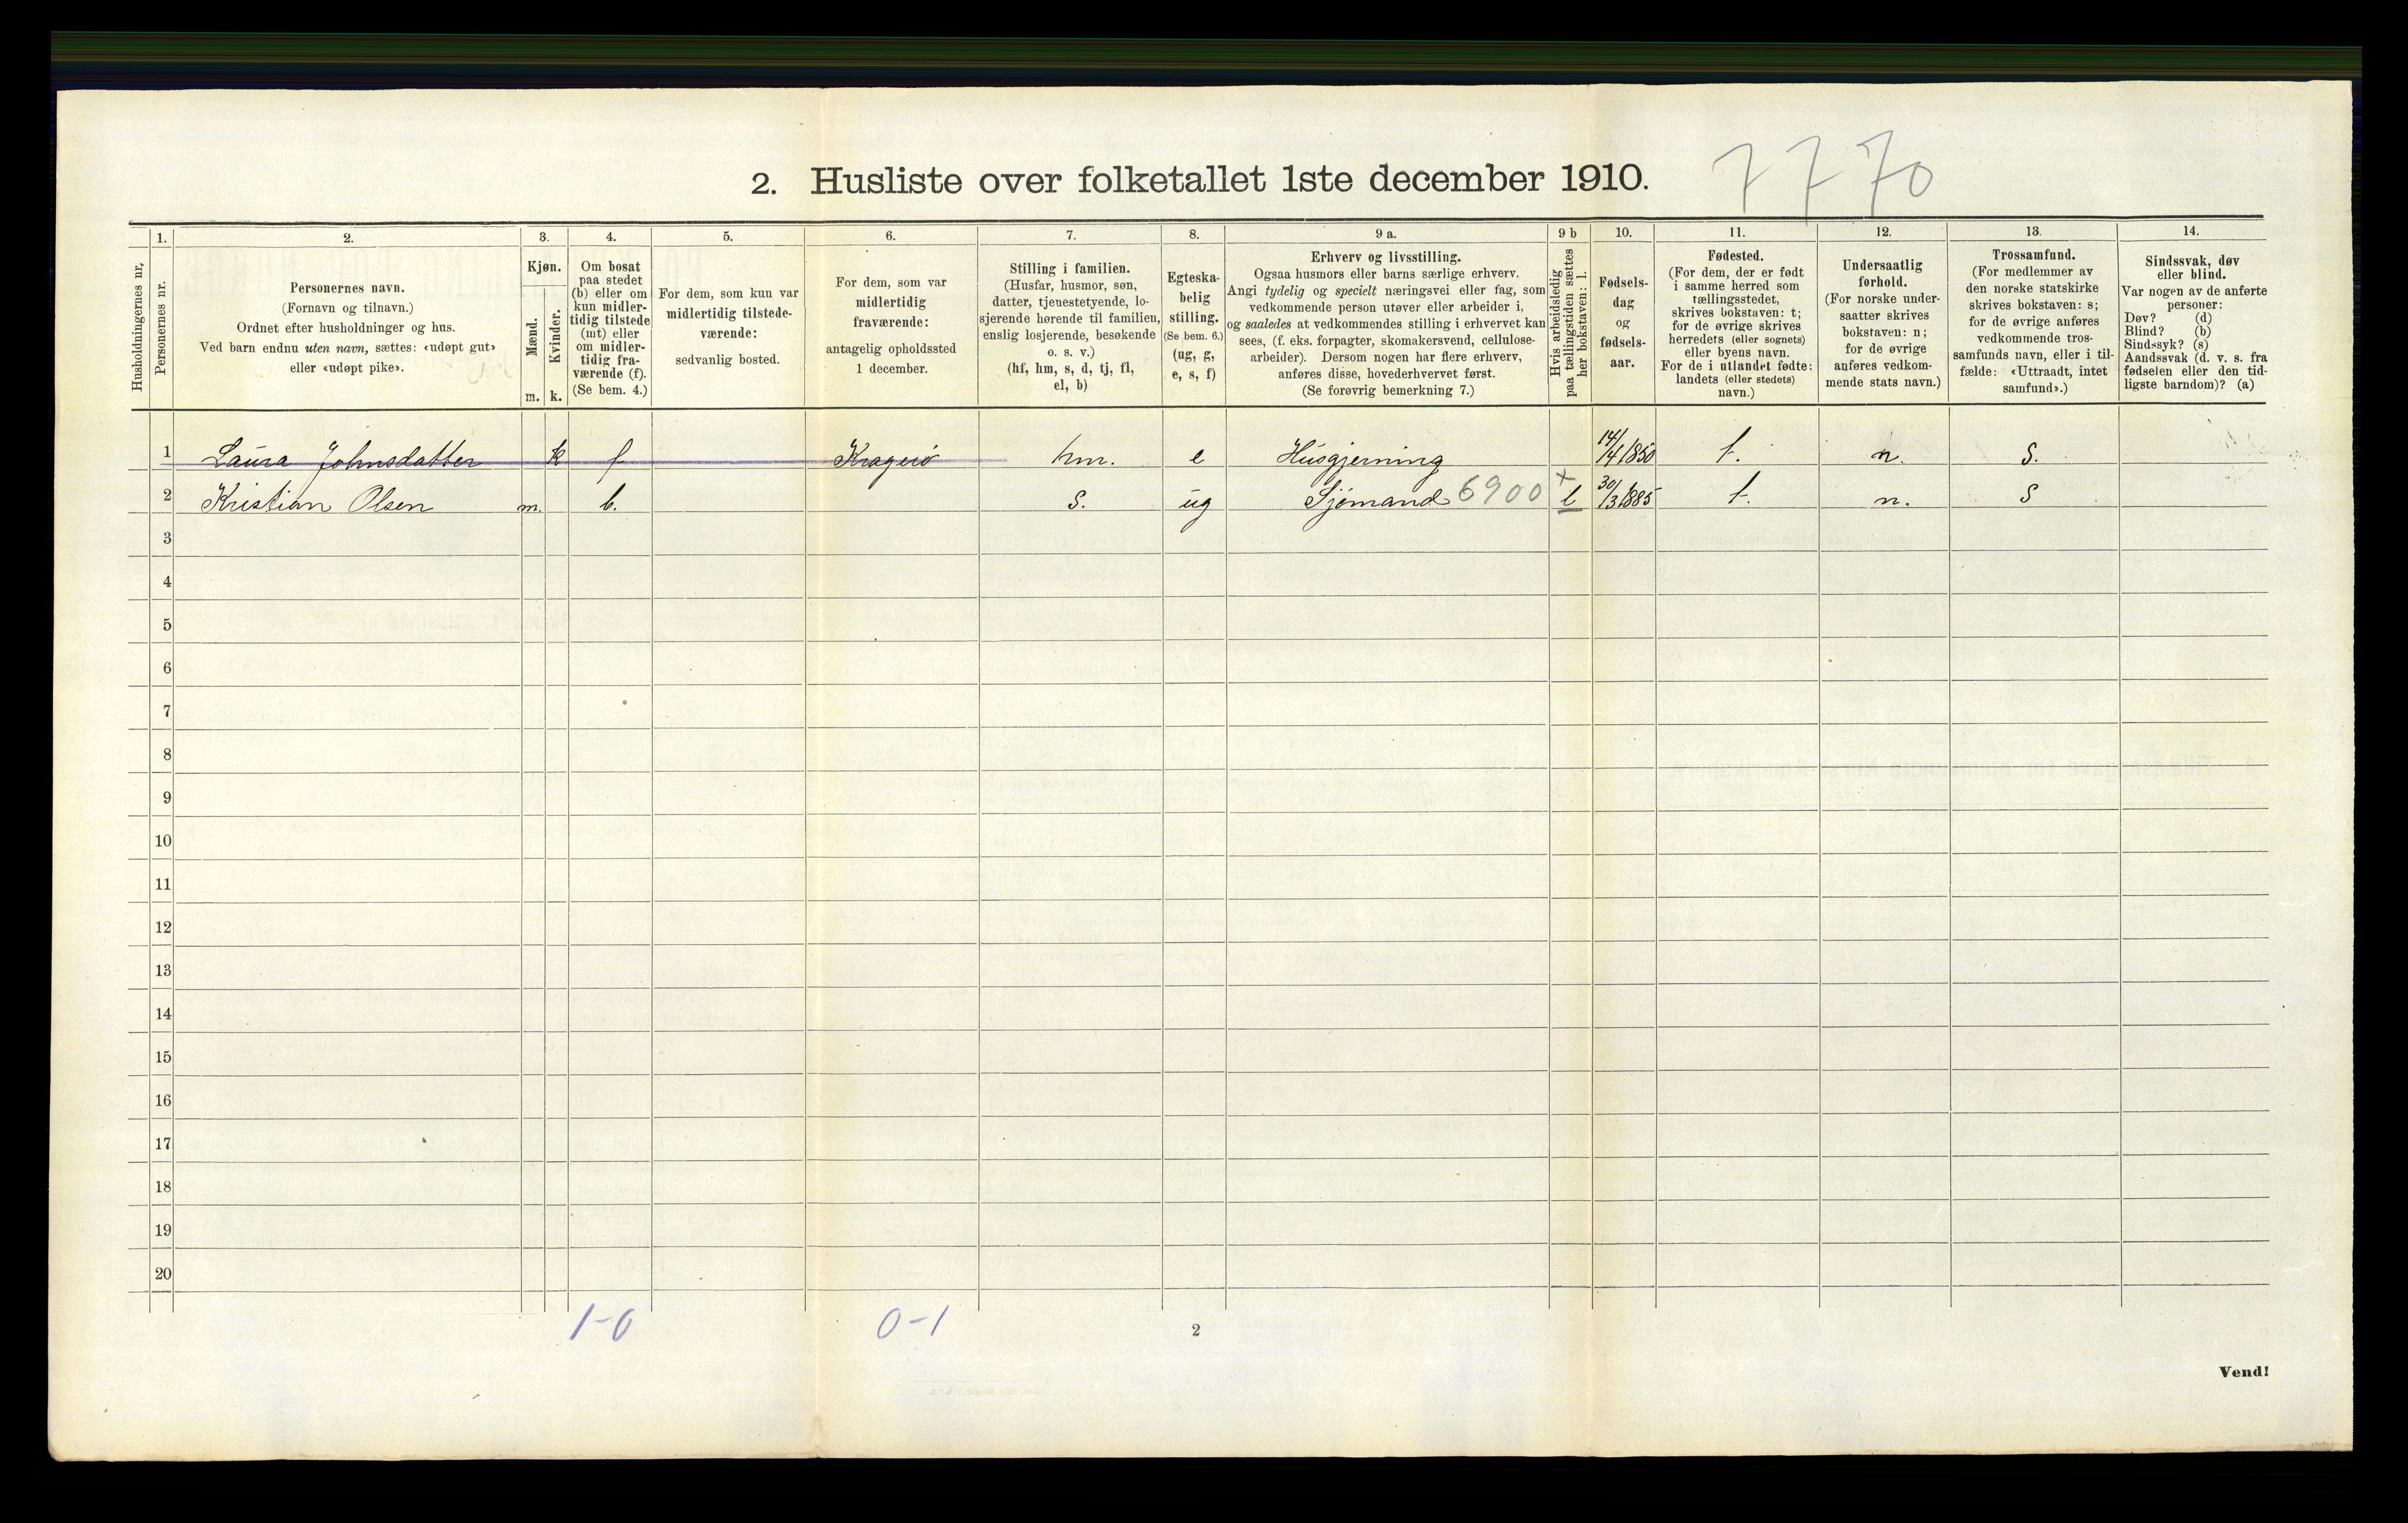 2. Husliste over folketallet 1ste december 1910.
7770
Husholdningernes nr.
1.
Personernes nr.
2.
Personernes navn.
(Fornavn og tilnavn.)
Ordnet efter husholdninger og hus.
Ved barn endnu uten navn, sættes: «udøpt gut»
eller «udøpt pike».
3.
Kjøn.
Mænd.
Kvinder.
m. k.
4.
Om bosat
paa stedet
(b) eller om
kun midler-
tidig tilstede
(mt) eller
om midler-
tidig fra-
værende (f).
(Se bem. 4.)
5.
For dem, som kun var
midlertidig tilstede-
værende:
sedvanlig bosted.
6.
For dem, som var
midlertidig
fraværende:
antagelig opholdssted
1 december.
7.
Stilling i familien.
(Husfar, husmor, søn,
datter, tjenestetyende, lo-
sjerende hørende til familien,
enslig losjerende, besøkende
o. s. v.)
(hf, hm, s, d, tj, fl,
el, b)
8.
Egteska-
belig
stilling.
(Se bem. 6.)
(ug, g,
e, s, f)
9 a.
Erhverv og livsstilling.
Ogsaa husmors eller barns særlige erhverv.
Angi tydelig og specielt næringsvei eller fag, som
vedkommende person utøver eller arbeider i,
og saaledes at vedkommendes stilling i erhvervet kan
sees, (f. eks. forpagter, skomakersvend, cellulose-
arbeider). Dersom nogen har flere erhverv,
anføres disse, hovederhvervet først.
(Se forøvrig bemerkning 7.)
9 b
Hvis arbeidsledig
paa tællingstiden sættes
her bokstaven: l.
10.
Fødsels-
dag
og
fødsels-
aar.
11.
Fødested.
(For dem, der er født
i samme herred som
tællingsstedet,
skrives bokstaven: t;
for de øvrige skrives
herredets (eller sognets)
eller byens navn.
For de i utlandet fødte:
landets (eller stedets)
navn.)
12.
Undersaatlig
forhold.
(For norske under-
saatter skrives
bokstaven: n;
for de øvrige
anføres vedkom-
mende stats navn.)
13.
Trossamfund.
(For medlemmer av
den norske statskirke
skrives bokstaven: s;
for de øvrige anføres
vedkommende tros-
samfunds navn, eller i til-
fælde: «Uttraadt, intet
samfund».)
14.
Sindssvak, døv
eller blind.
Var nogen av de anførte
personer:
Døv? (d)
Blind? (b)
Sindssyk? (s)
Aandssvak (d. v. s. fra
fødselen eller den tid-
ligste barndom)? (a)
1 Laura Johnsdatter k f Kragerö hm. e Husgjerning 14/4 1850 t. n. s.
2 Kristian Olsen m. b. s. ug Sjömand 6900 + l 30/3 1885 t. n. s
3
4
5
6
7
8
9
10
11
12
13
14
15
16
17
18
19
20
1-0 0-1
2
Vend!